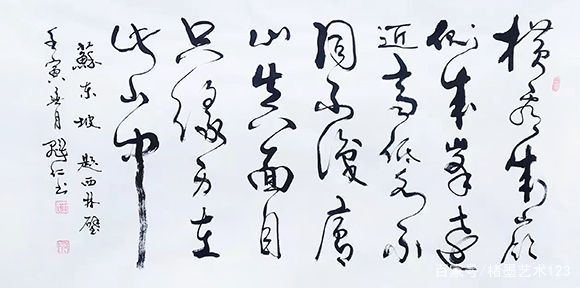 横看成岭
侧成峰遠
近高低各不
同不識廬
山真面目
只緣身在
此山中
蘇东坡 题西林壁
壬寅 月 仁书
百家号/楮墨艺术123